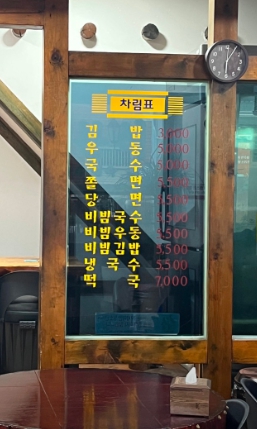 차림표
김 밥 3,000
우 동 5,000
국 수 5,000
쫄 면 5,500
당 면 5,500
비 빔 국 수 5,500
비 빔 우 동 5,500
비 빔 김 밥 5,500
냉 국 수 5,500
떡 국 7,000